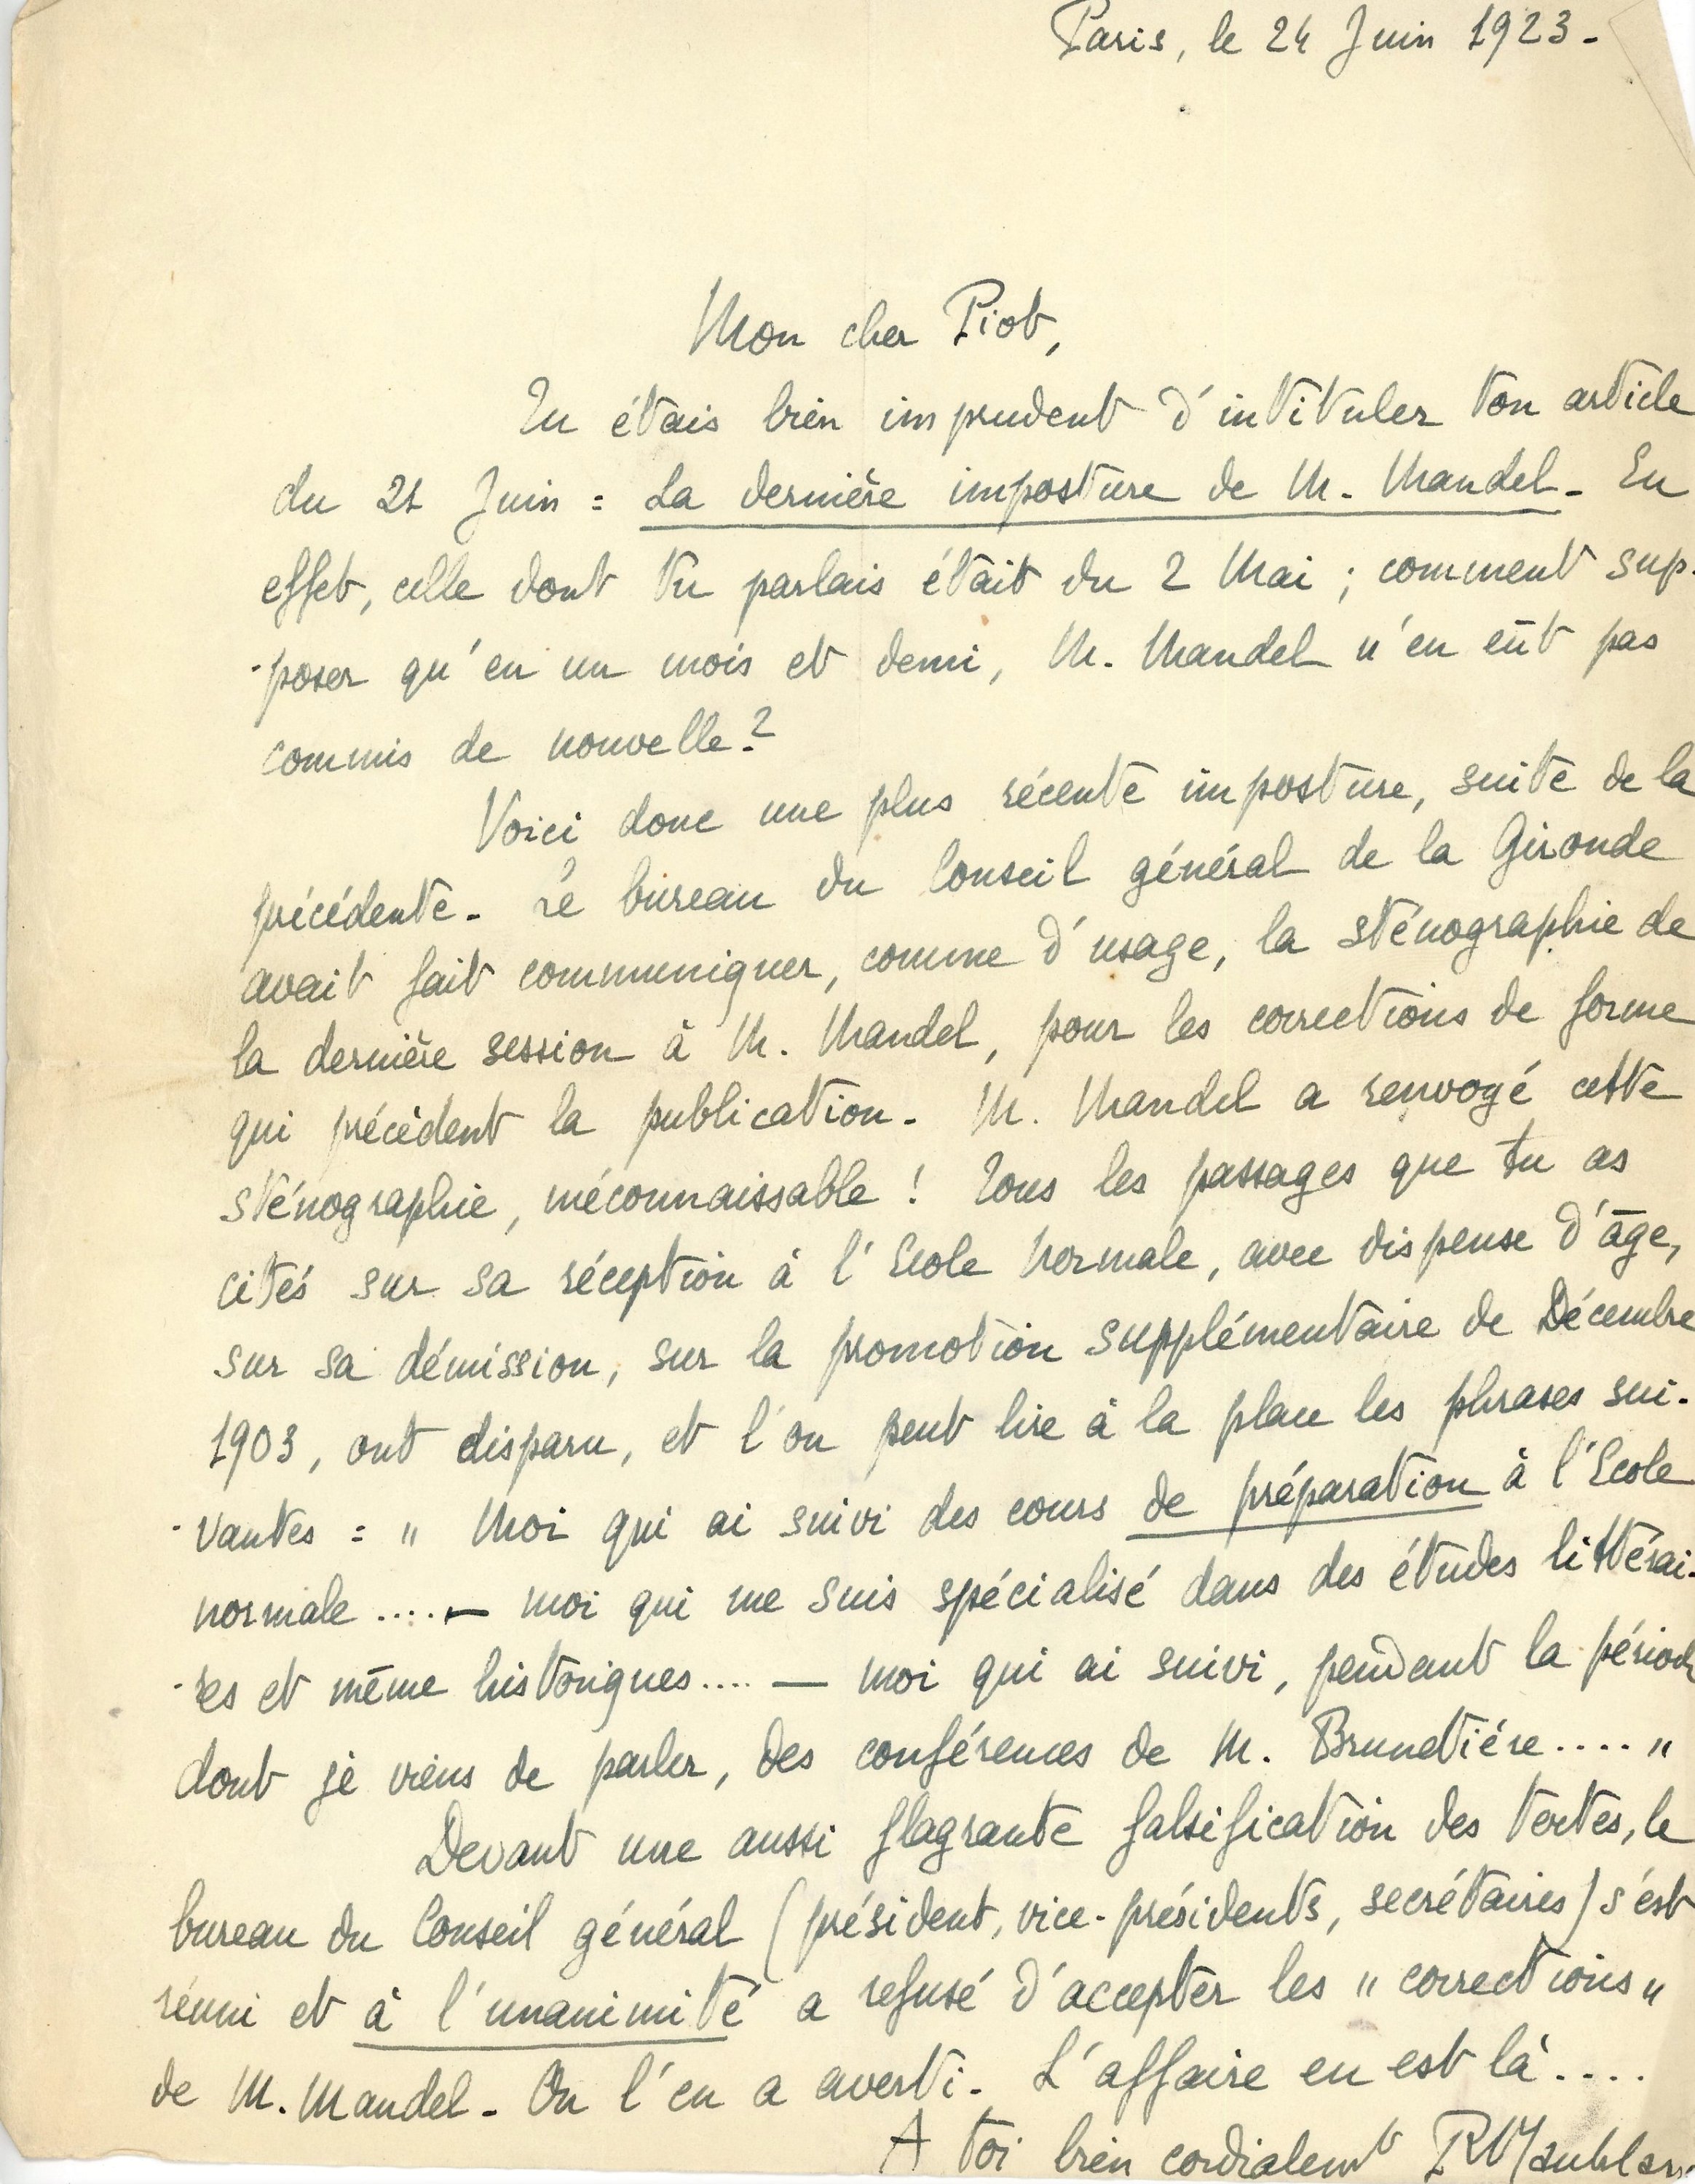 Paris, le 24 Juin 1923.
Mon cher Piot,
Tu étais bien imprudent d'intituler ton article
du 21 Juin : La dernière imposture de M. Mandel. En
effet, celle dont tu parlais était du 2 Mai ; comment sup-
-poser qu'en un mois et demi, M. Mandel n'en eût pas
commis de nouvelle ?
Voici donc une plus récente imposture, suite de la
précédente. Le bureau du Conseil général de la Gironde
avait fait communiquer, comme d'usage, la sténographie de
la dernière session à M. Mandel, pour les corrections de forme
qui précèdent la publication. M. Mandel a renvoyé cette
sténographie, méconnaissable ! Tous les passages que tu as
cités sur sa réception à l'Ecole Normale, avec dispense d'âge,
sur sa démission, sur la promotion supplémentaire de Décembre
1903, ont disparu, et l'on peut lire à la place les phrases sui-
-vantes : " Moi qui ai suivi des cours de préparation à l'Ecole
normale .... — moi qui me suis spécialisé dans des études littérai-
-res et même historiques .... — moi qui ai suivi, pendant la période
dont je viens de parler, des conférences de M. Brunetière .... "
Devant une aussi flagrante falsification des textes, le
bureau du Conseil général (président, vice-présidents, secrétaires) s'est
réuni et à l'unanimité a refusé d'accepter les " corrections "
de M. Mandel. On l'en a averti. L'affaire en est là ....
A toi bien cordialemt